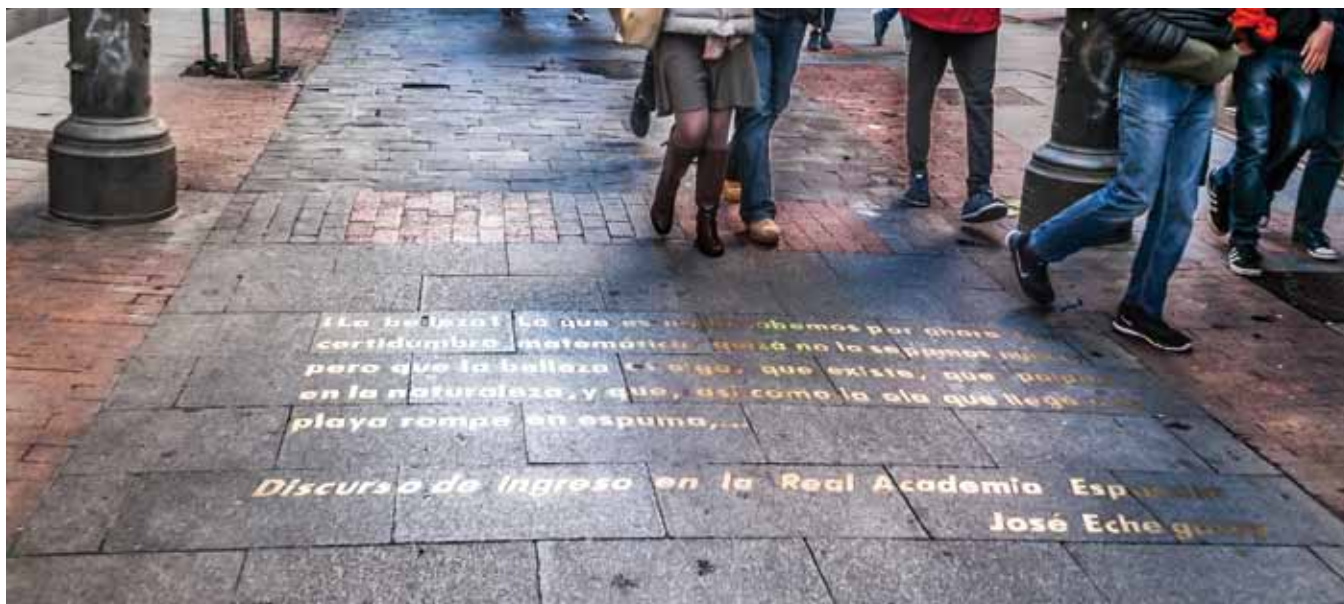 ¡La belleza! Lo que es no lo sabemos por ahora
certidumbre matemática, quizá no la sepamos
pero que la belleza es algo, que existe, que palpita
en la naturaleza, y que, así como la ola que llega
playa rompe en espuma,...
Discurso de Ingreso en la Real Academia Española
José Echegaray